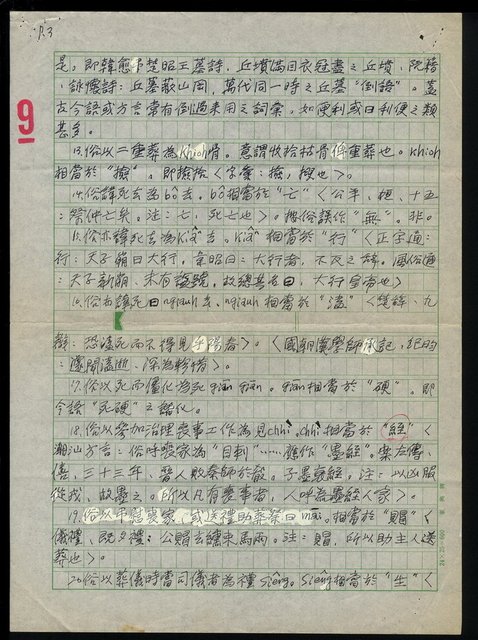 P.3
9
是，即韓愈 楚昭王墓詩，丘墳滿目衣冠盡之丘墳，阮籍
，詠懷詩：丘墓蔽山岡，萬代同一時之丘墓"倒語"。蓋
古今語或方言常有倒過來用之詞彙，如便利或曰利便之類
甚多。
13.俗以二重葬為khioh骨。意謂收拾枯骨 重葬也。khioh
相當於"撿"，即撿拾<字彙：撿，撿也>。
14.俗諱死去為bô去，bô相當於"亡"<公羊，桓，十五
：祭仲亡矣。注：亡，死亡也>。 俗誤作"無"，非。
15.俗亦諱死去為kiâ去，kiâ相當於"行"<正字通：
行：天子崩曰大行，韋昭曰：大行者，不反之辭。風俗通
：天子新崩，未有謚號，故總其名曰，大行皇帝也>
16.俗 死曰 去， 相當於"溘"<楚辭、九
辯：恐溘死而不得見乎陽春>。<國朝漢學師承記，紀昀
：遽聞溘逝，深為軫惜>。
17.俗以死而僵化為死 。 相當於"硬"。即
今語"死硬"之 化。
18.俗以參加治理喪事工作為見chhi，chhi相當於"絰"<
潮汕方言：俗呼喪家為"目刺"……應作"墨絰"。案左傳、
僖，三十三年、晉人敗秦師於殽。子墨衰絰，注：以凶服
從戎，故墨之。所以凡有喪事者，人呼為墨絰人家>。
19.俗以弔慰喪家，或送禮助葬祭曰 。相當於"賵"<
儀禮，既夕禮：公賵玄纁束馬兩。注：賵，所以助主人送
葬也>。
20.俗以葬儀時當司儀者為禮siêng。siêng相當於"生"<
24×25=600